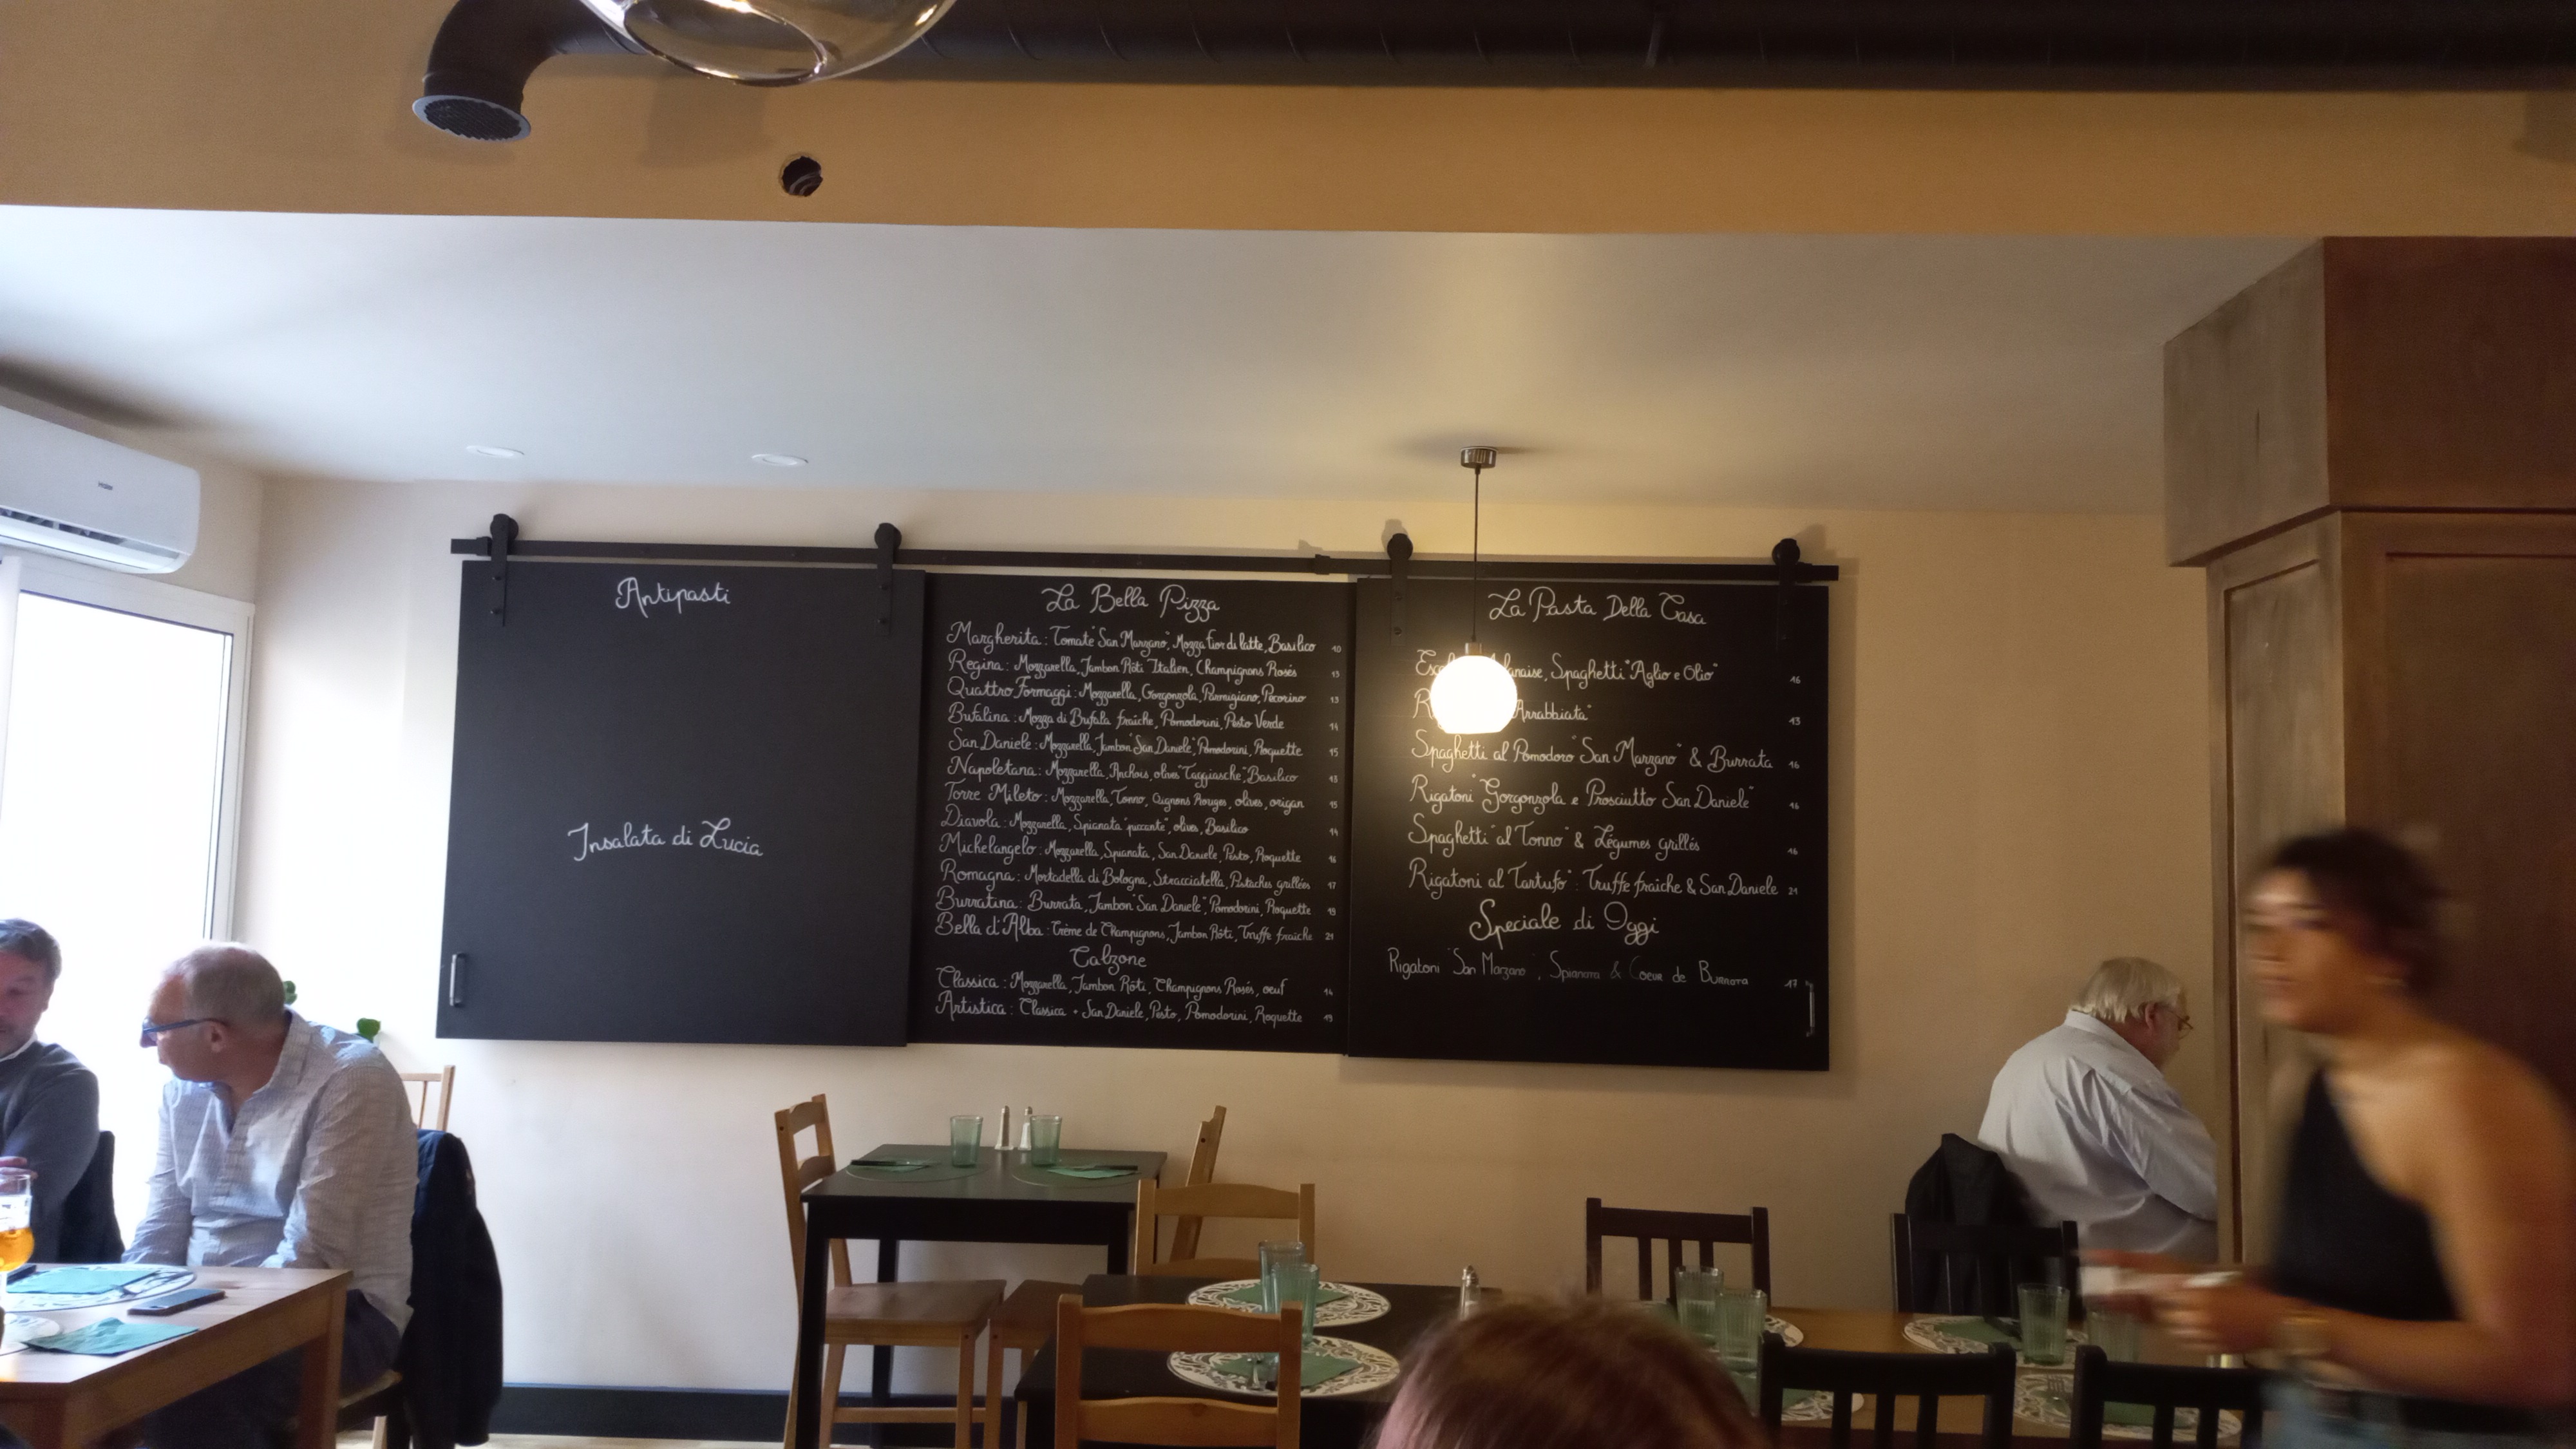 Antipasti
Insalata di Lucia
La Bella Pizza
Margherita : Tomate "San Marzano", Mozza Fior di latte, Basilico 10
Regina : Mozzarella, Jambon Rôti Italien, Champignons Rosés 13
Quattro Formaggi : Mozzarella, Gorgonzola, Parmigiano, Pecorino 13
Bufalina : Mozza di Bufala fraîche, Pomodorini, Pesto Verde 14
San Daniele : Mozzarella, Jambon "San Daniele", Pomodorini, Roquette 15
Napoletana : Mozzarella, Anchois, olives "Taggiasche", Basilico 13
Torre Mileto : Mozzarella, Tonno, Oignons Rouges, olives, origan 15
Diavola : Mozzarella, Spianata "piccante", olives, Basilico 14
Michelangelo : Mozzarella, Spianata, San Daniele, Pesto, Roquette 16
Romagna : Mortadella di Bologna, Stracciatella, Pistaches grillées 17
Burratina : Burrata, Jambon "San Daniele", Pomodorini, Roquette 19
Bella d'Alba : Crème de Champignons, Jambon Rôti, Truffe fraîche 21
Calzone
Classica : Mozzarella, Jambon Rôti, Champignons Rosés, oeuf 14
Artistica : Classica + San Daniele, Pesto, Pomodorini, Roquette 19
La Pasta Della Casa
Spaghetti "Aglio e Olio" 16
Arrabbiata" 13
Spaghetti al Pomodoro "San Marzano" & Burrata 16
Rigatoni "Gorgonzola e Prosciutto San Daniele" 16
Spaghetti "al Tonno" & Légumes grillés 16
Rigatoni al Tartufo" : Truffe fraîche & San Daniele 21
Speciale di Oggi
Rigatoni "San Marzano", Spianata & Coeur de Burrata 17